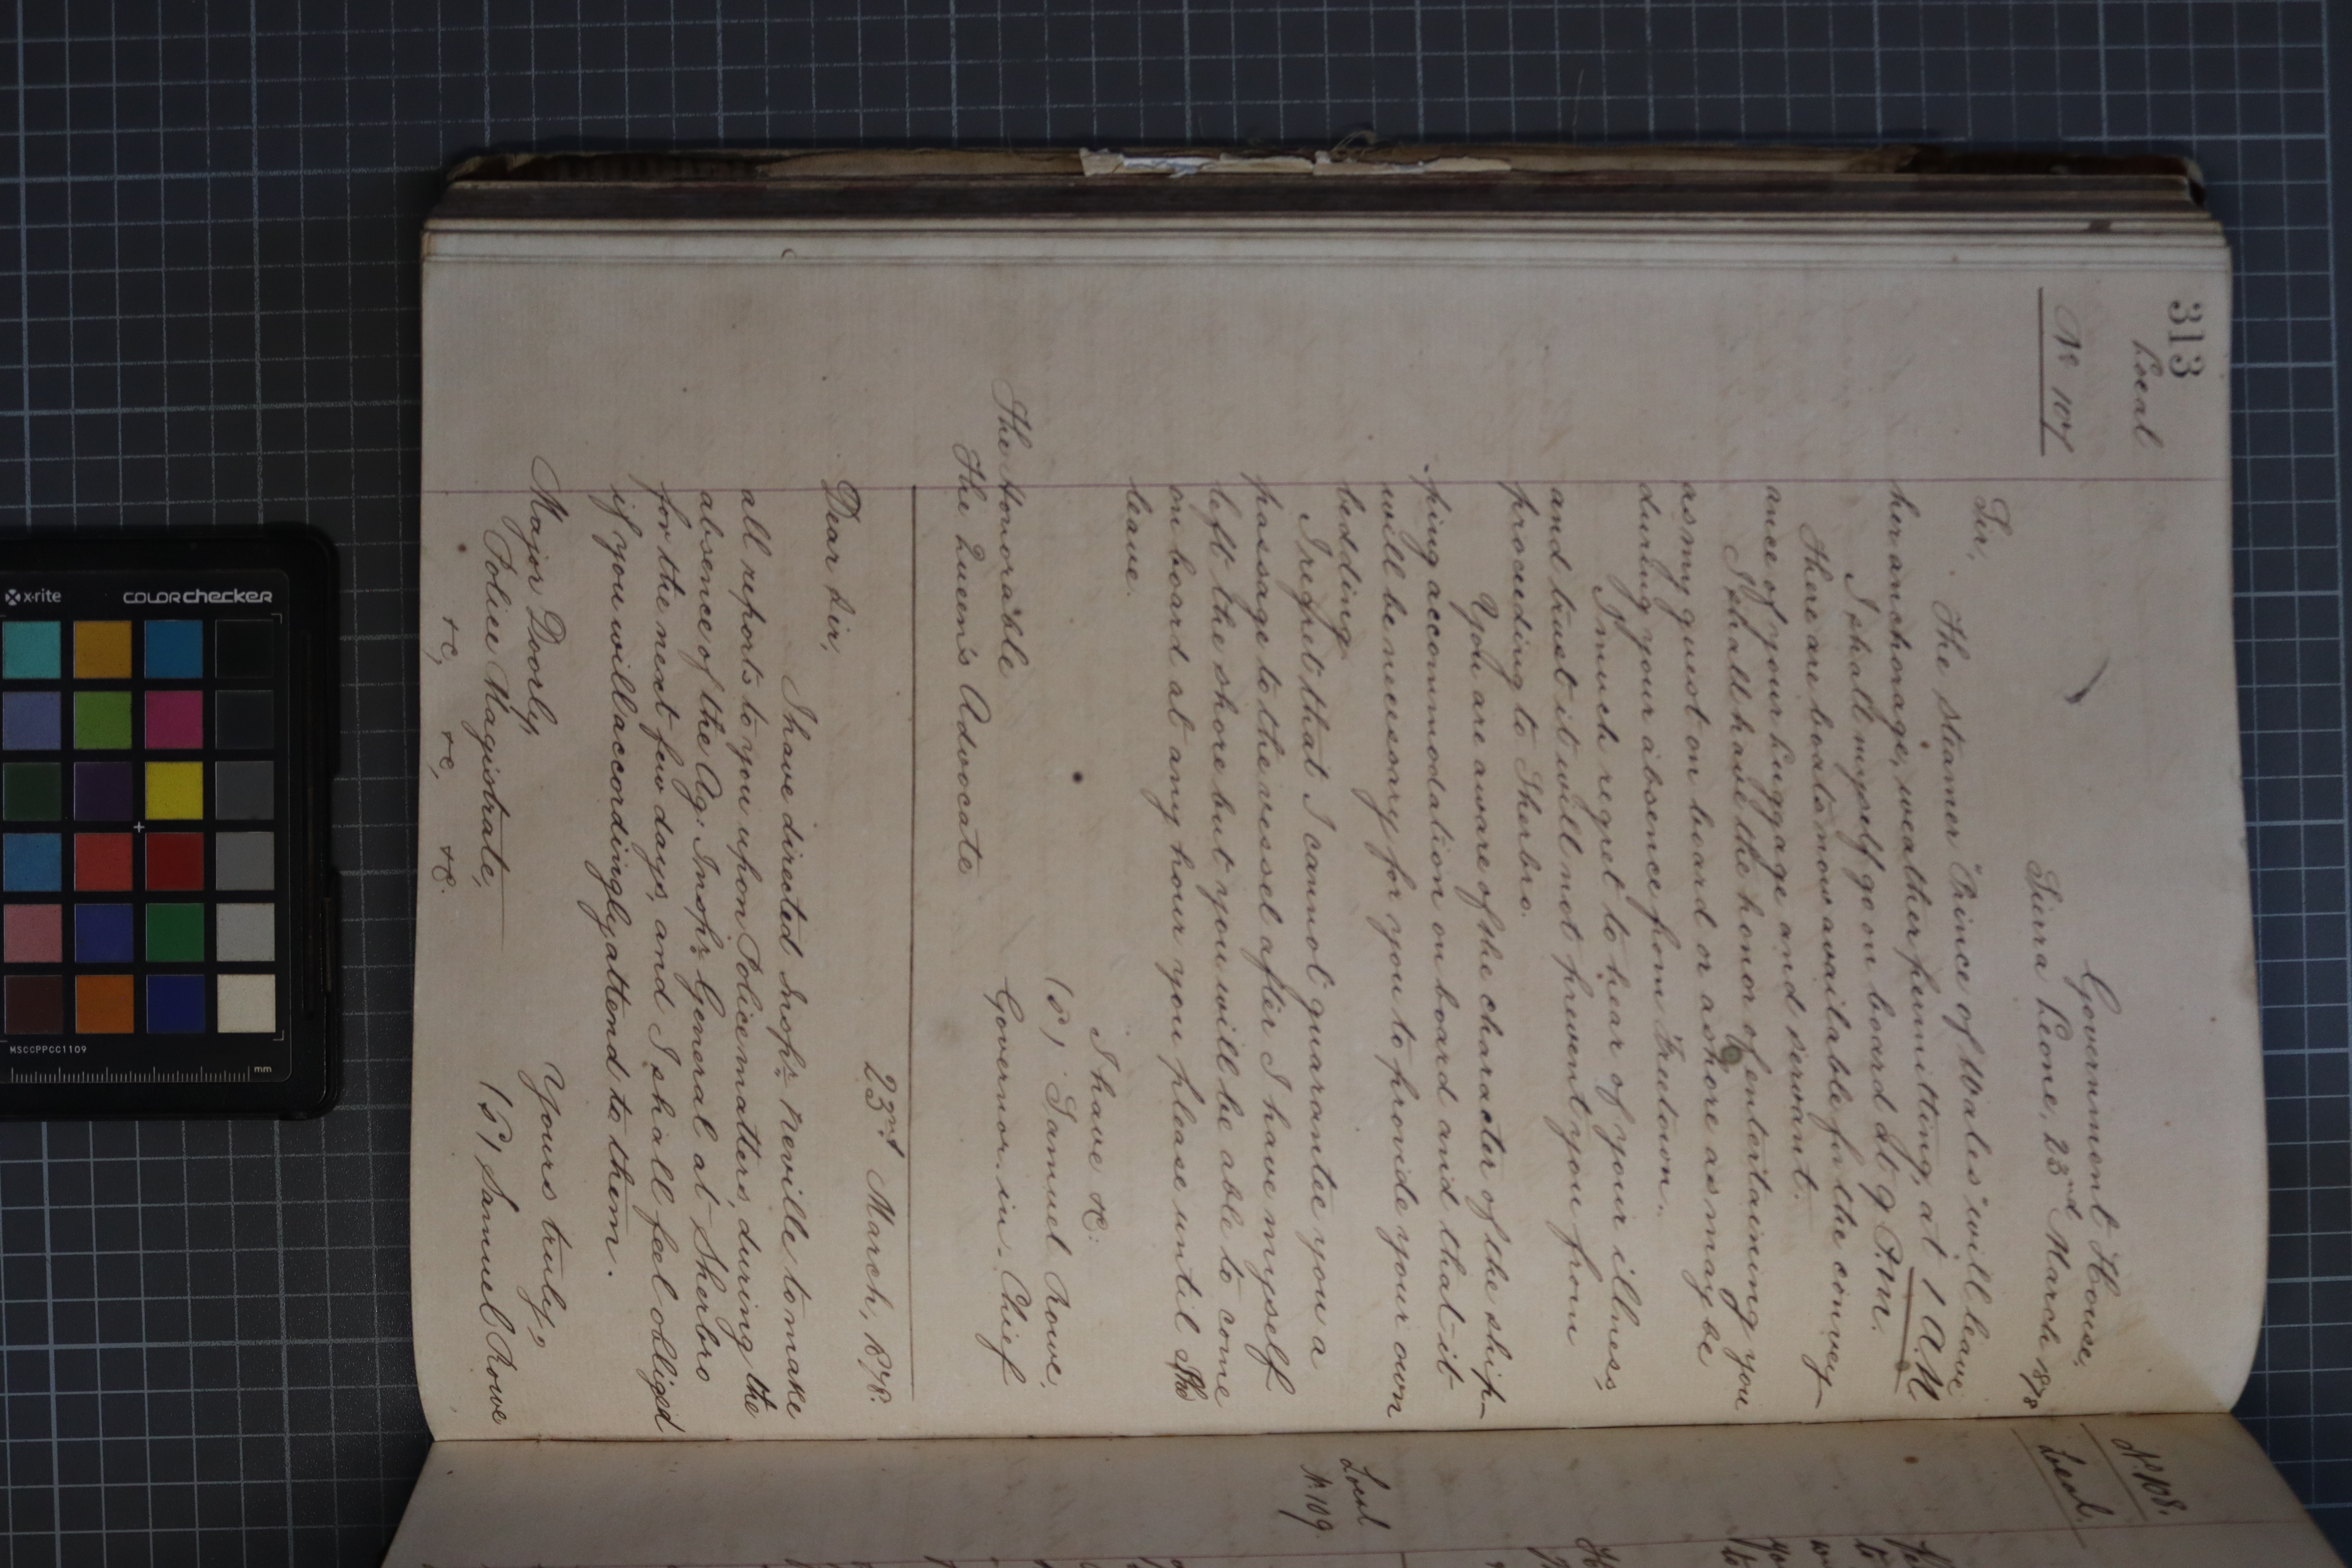 313
Local
No 107
Government House,
Sierra Leone, 23rd March 1878
Sir,
The steamer "Prince of Wales" will leave
her anchorage, weather permitting, at 1 A.M.
I shall myself go on board at 9 P.M.
There are boats now available for the convey-
ance of your luggage and servant.
I shall have the honor of entertaining you
as my guest on board or ashore as may be
during your absence from Freetown.
I much regret to hear of your illness
and trust it will not prevent you from
proceeding to Sherbro.
You are aware of the character of the ship-
ping accommodation on board and that it
will be necessary for you to provide your own
bedding.
I regret that I cannot guarantee you a
passage to the vessel after I have myself
left the shore but you will be able to come
on board at any hour you please until she
leave.
I have &c:
(S) Samuel Rowe,
Governor-in-Chief
The Honorable
The Queen's Advocate
23rd March, 1878.
Dear Sir,
I have directed Inspr. Neville to make
all reports to you upon Police matters, during the
absence of the Ag: Inspr. General at Sherbro
for the next few days, and I shall feel obliged
if you will accordingly attend to them.
Yours truly,
(S) Samuel Rowe
Major Doorly,
Police Magistrate,
&c, &c, &c.
No 108.
Local.
Local
No 109.